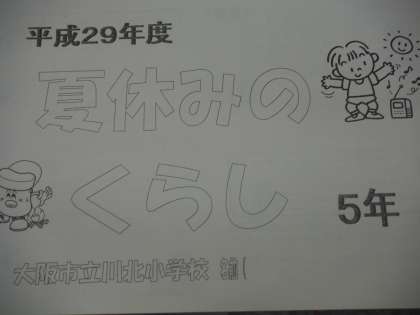 平成29年度
夏休みの
くらし
5年
大阪市立川北小学校